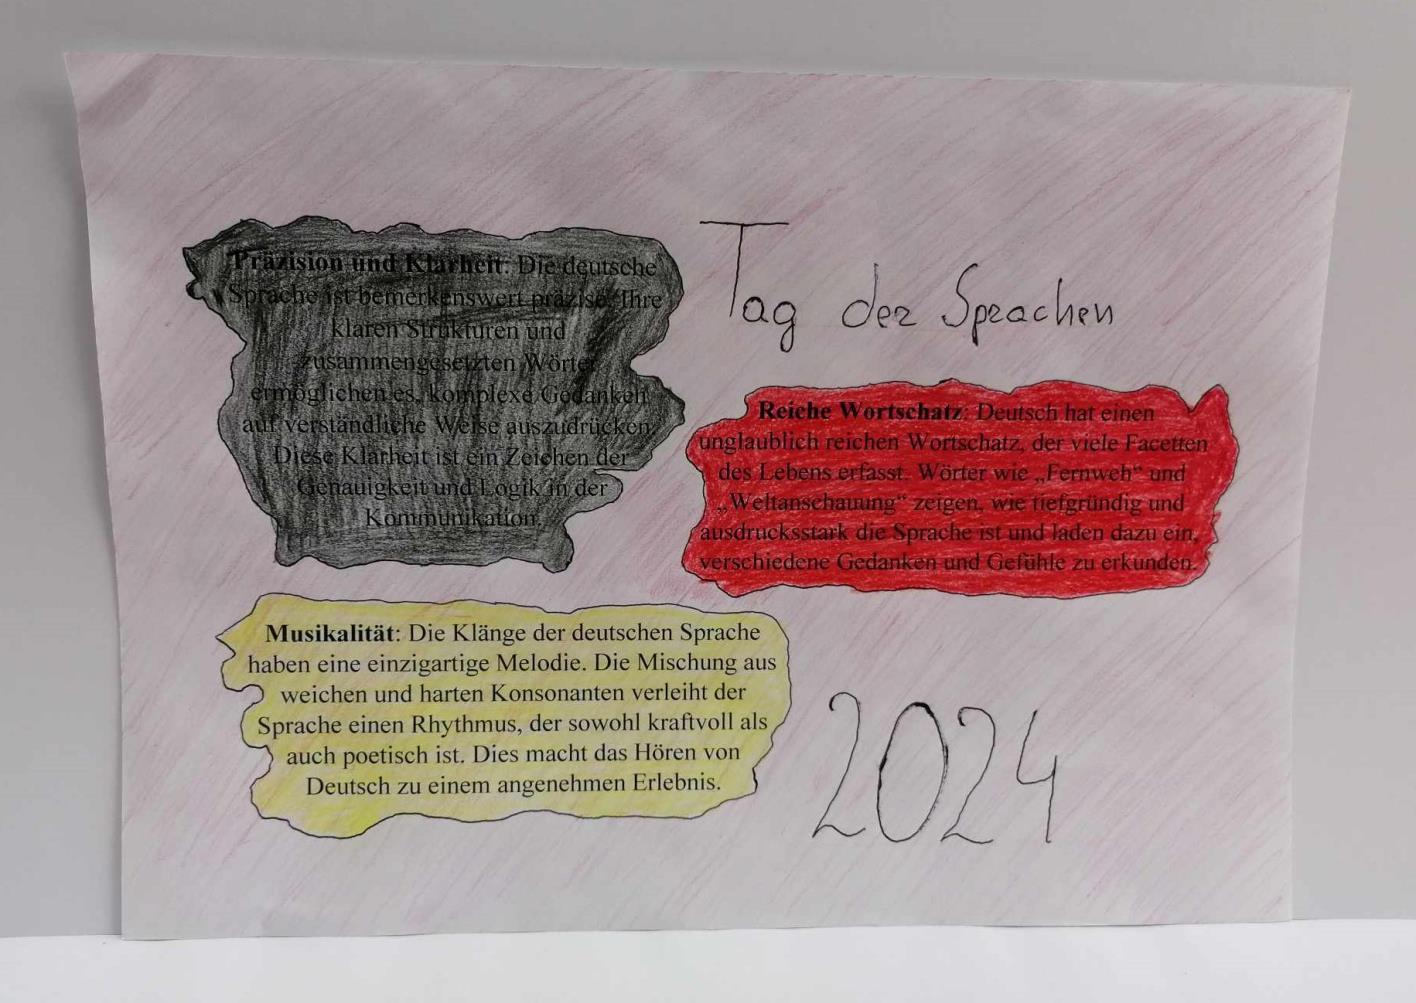 Präzision und Klarheit: Die deutsche
Sprache ist bemerkenswert präzise. Ihre
klaren Strukturen und
zusammengesetzten Wörter
ermöglichen es, komplexe Gedanken
auf verständliche Weise auszudrücken.
Diese Klarheit ist ein Zeichen der
Genauigkeit und Logik in der
Kommunikation.
Tag der Sprachen
Reiche Wortschatz: Deutsch hat einen
unglaublich reichen Wortschatz, der viele Facetten
des Lebens erfasst. Wörter wie „Fernweh“ und
„Weltanschauung“ zeigen, wie tiefgründig und
ausdrucksstark die Sprache ist und laden dazu ein,
verschiedene Gedanken und Gefühle zu erkunden.
Musikalität: Die Klänge der deutschen Sprache
haben eine einzigartige Melodie. Die Mischung aus
weichen und harten Konsonanten verleiht der
Sprache einen Rhythmus, der sowohl kraftvoll als
auch poetisch ist. Dies macht das Hören von
Deutsch zu einem angenehmen Erlebnis.
2024